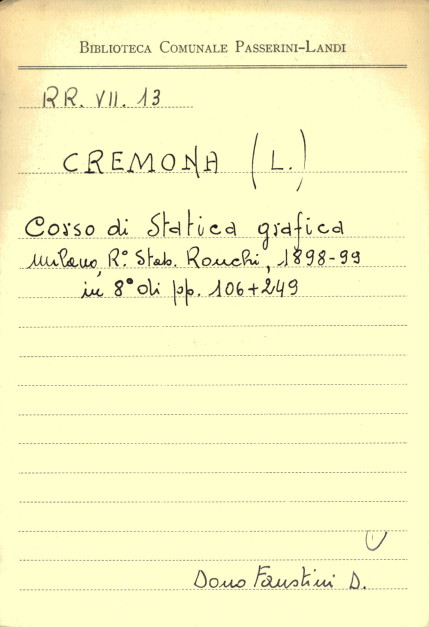 BIBLIOTECA COMUNALE PASSERINI-LANDI
RR. VII. 13
CREMONA (L.)
Corso di Statica grafica
Milano, R.° Stab. Ronchi, 1898-99
in 8° di pp. 106+249
Dono Faustini D.